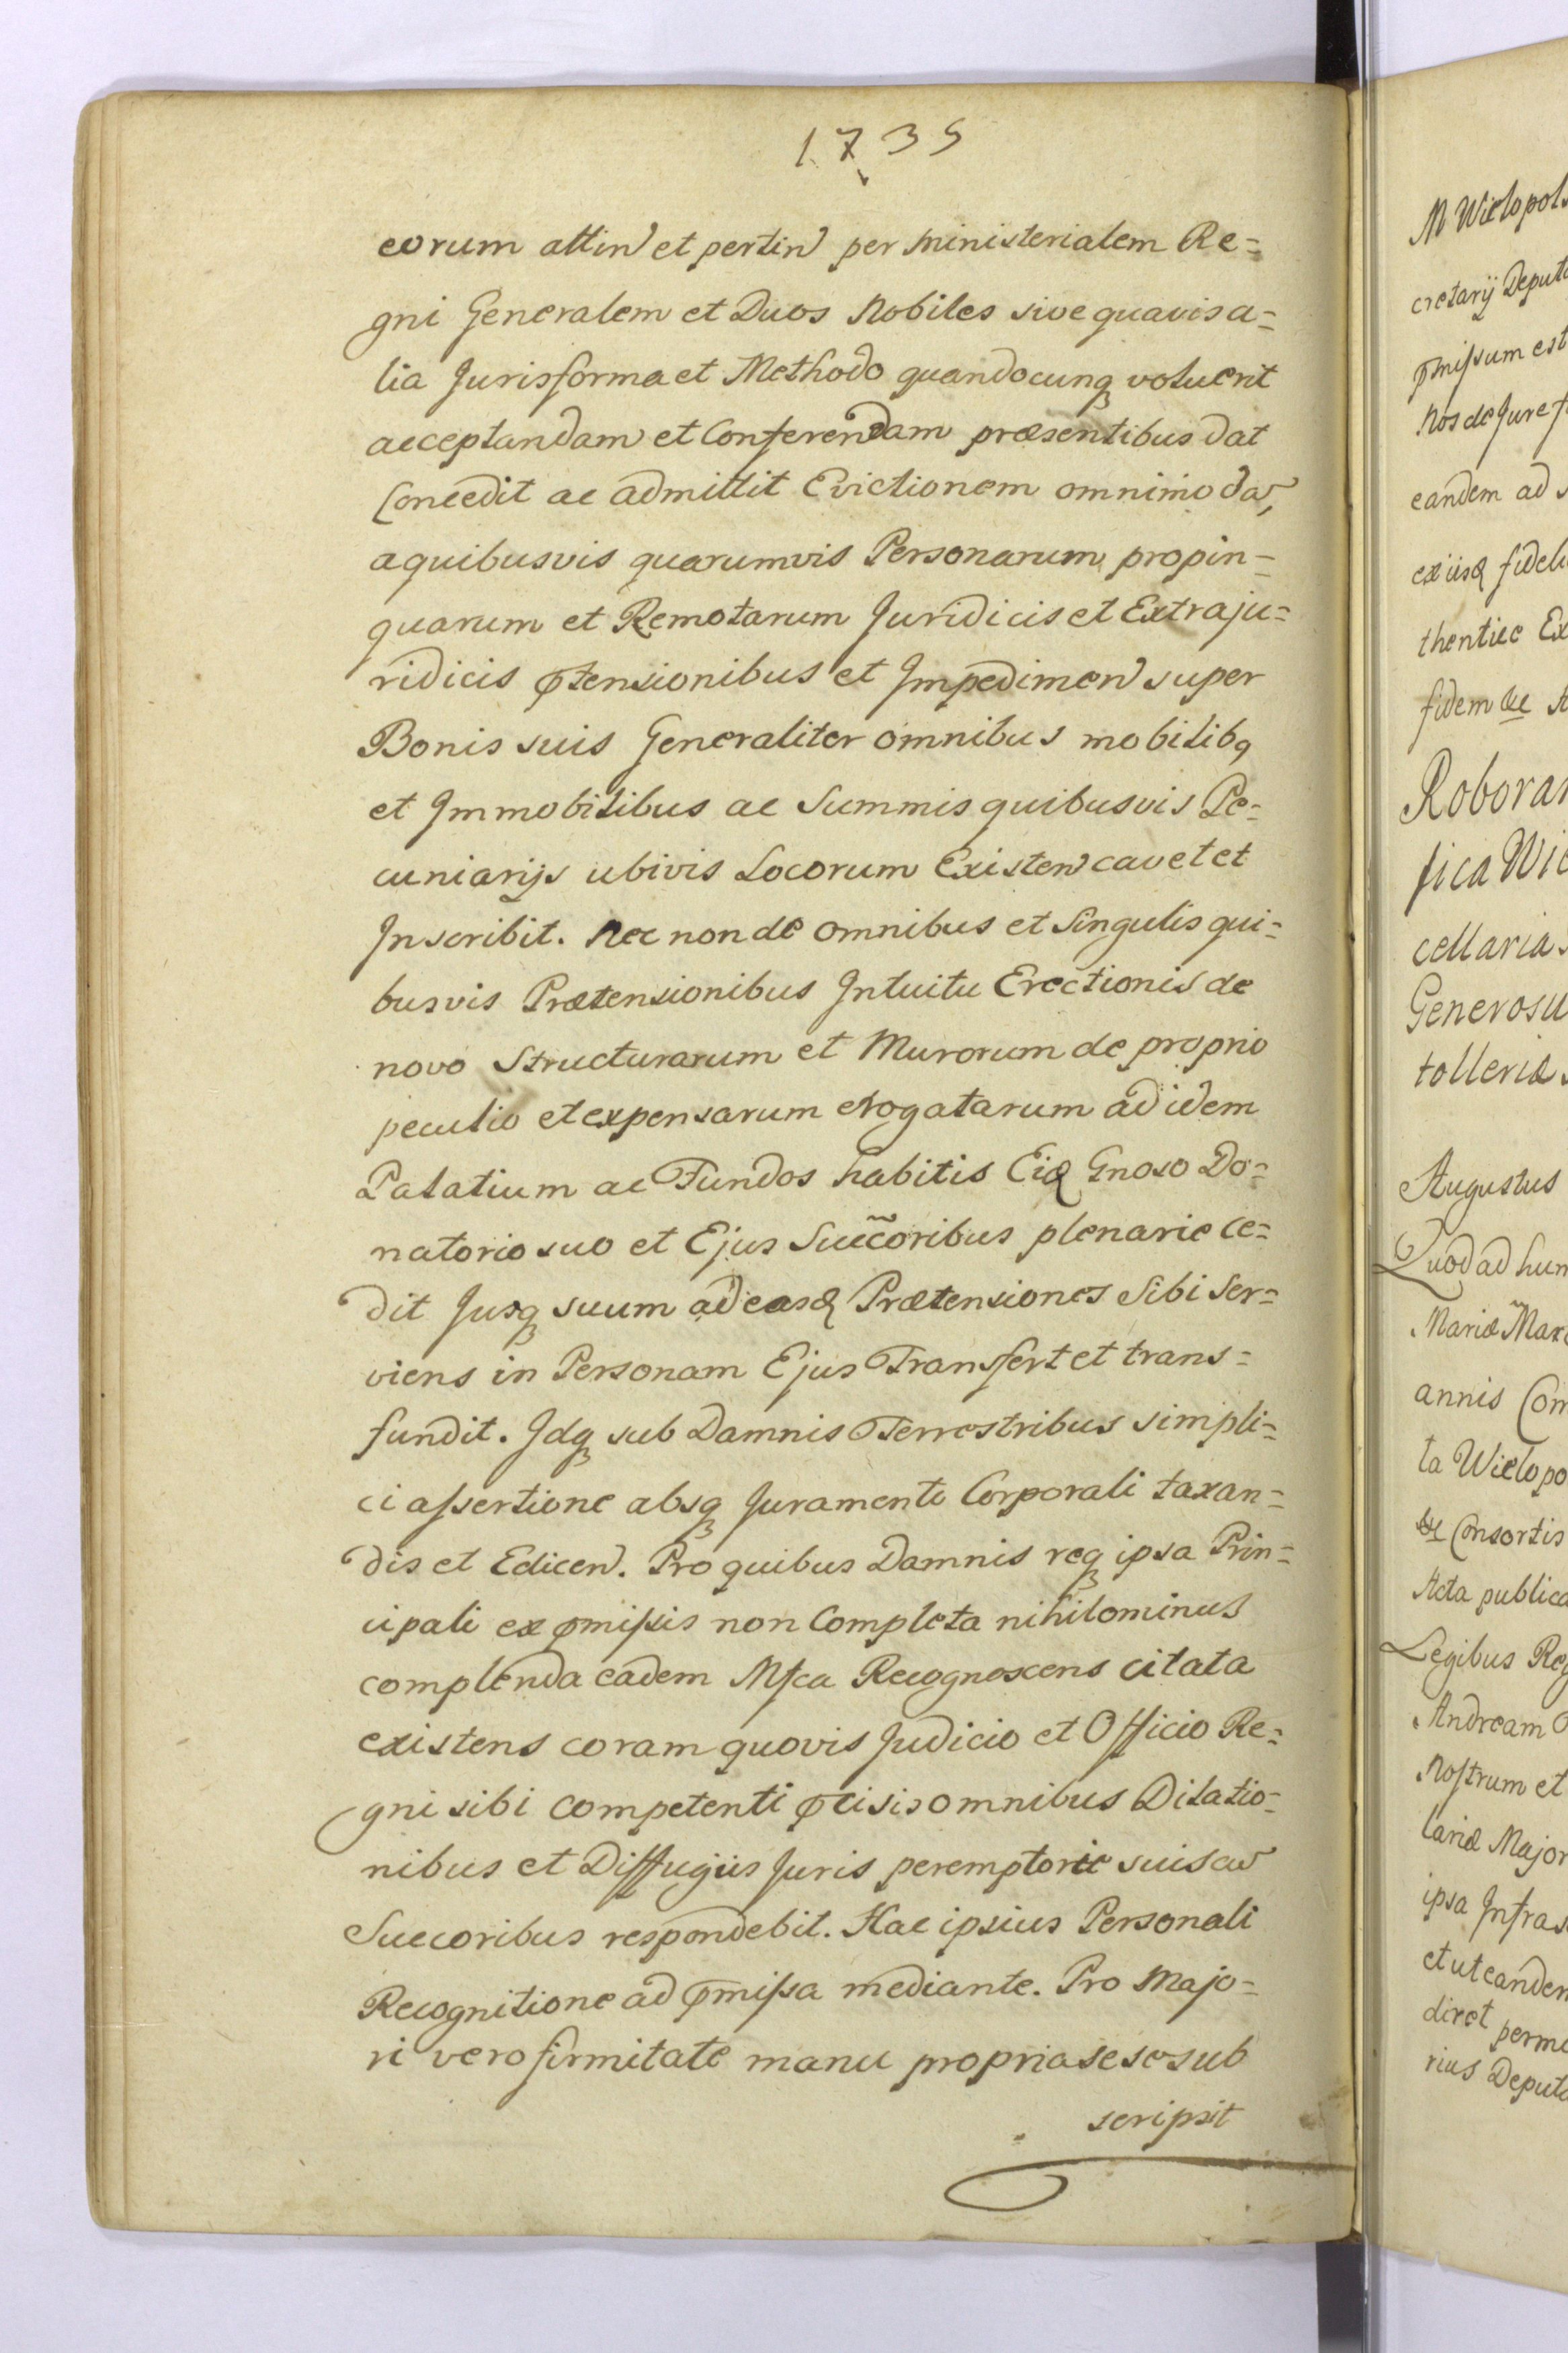 1735
eorum attin et pertin per Ministerialem Re=
gni Generalem et Duos Nobiles sive quavis a=
lia Juris forma et Methodo quandocunq voluerit
acceptandam et Conferendam præsentibus dat
Concedit ac admittit Evictionem omnimoda,
a quibusvis quarumvis Personarum propin=
quarum et Remotarum Juridicis et Extraju=
ridicis ptensionibus et Impedimen super
Bonis suis Generaliter omnibus mobilibq
et Immobilibus ac Summis quibusvis Pe=
cuniarijs ubivis Locorum Existen cavet et
Inscribit. Nec non de omnibus et Singulis qui=
busvis Prætensionibus Intuitu Erectionis de
novo Structurarum et Murorum de proprio
peculio et expensarum erogatarum ad idem
Palatium ac Fundos habitis Eid Gnoso Do=
natorio suo et Ejus Succ̃oribus plenarie ce=
dit Jusq suum ad easd Prætensiones Sibi Ser=
viens in Personam Ejus Transfert et trans=
fundit. Idq sub Damnis Terrestribus simpli=
ci assertione absq Juramento Corporali taxan=
dis et Edicen. Pro quibus Damnis req ipsa Prin=
cipali ex pmissis non Completa nihilominus
complenda eadem Mfca Recognoscens citata
existens coram quovis Judicio et Officio Re=
gni sibi Competenti pcisis omnibus Dilatio=
nibus et Diffugiis Juris peremptorie suis cu
Succoribus respondebit. Hac ipsius Personali
Recognitione ad pmissa mediante. Pro Majo=
ri vero firmitate manu propria sese sub
scripsit
M Wielopols
cretarij Deputa
pmissum est
Nos de Jure
eandem ad
exiisd fideli
thentice Ex
fidem &c
Roborar
fica Wie
cellaria
Generosu
tolleriæ
Augustus
Quod ad hun
Mariæ Mar
annis Com
ta Wielopo
&c Consortis
Acta publica
Legibus Reg
Andream
Nostrum et
lariæ Major
ipsa Infras
et ut eandem
diret permi
rius Deputa